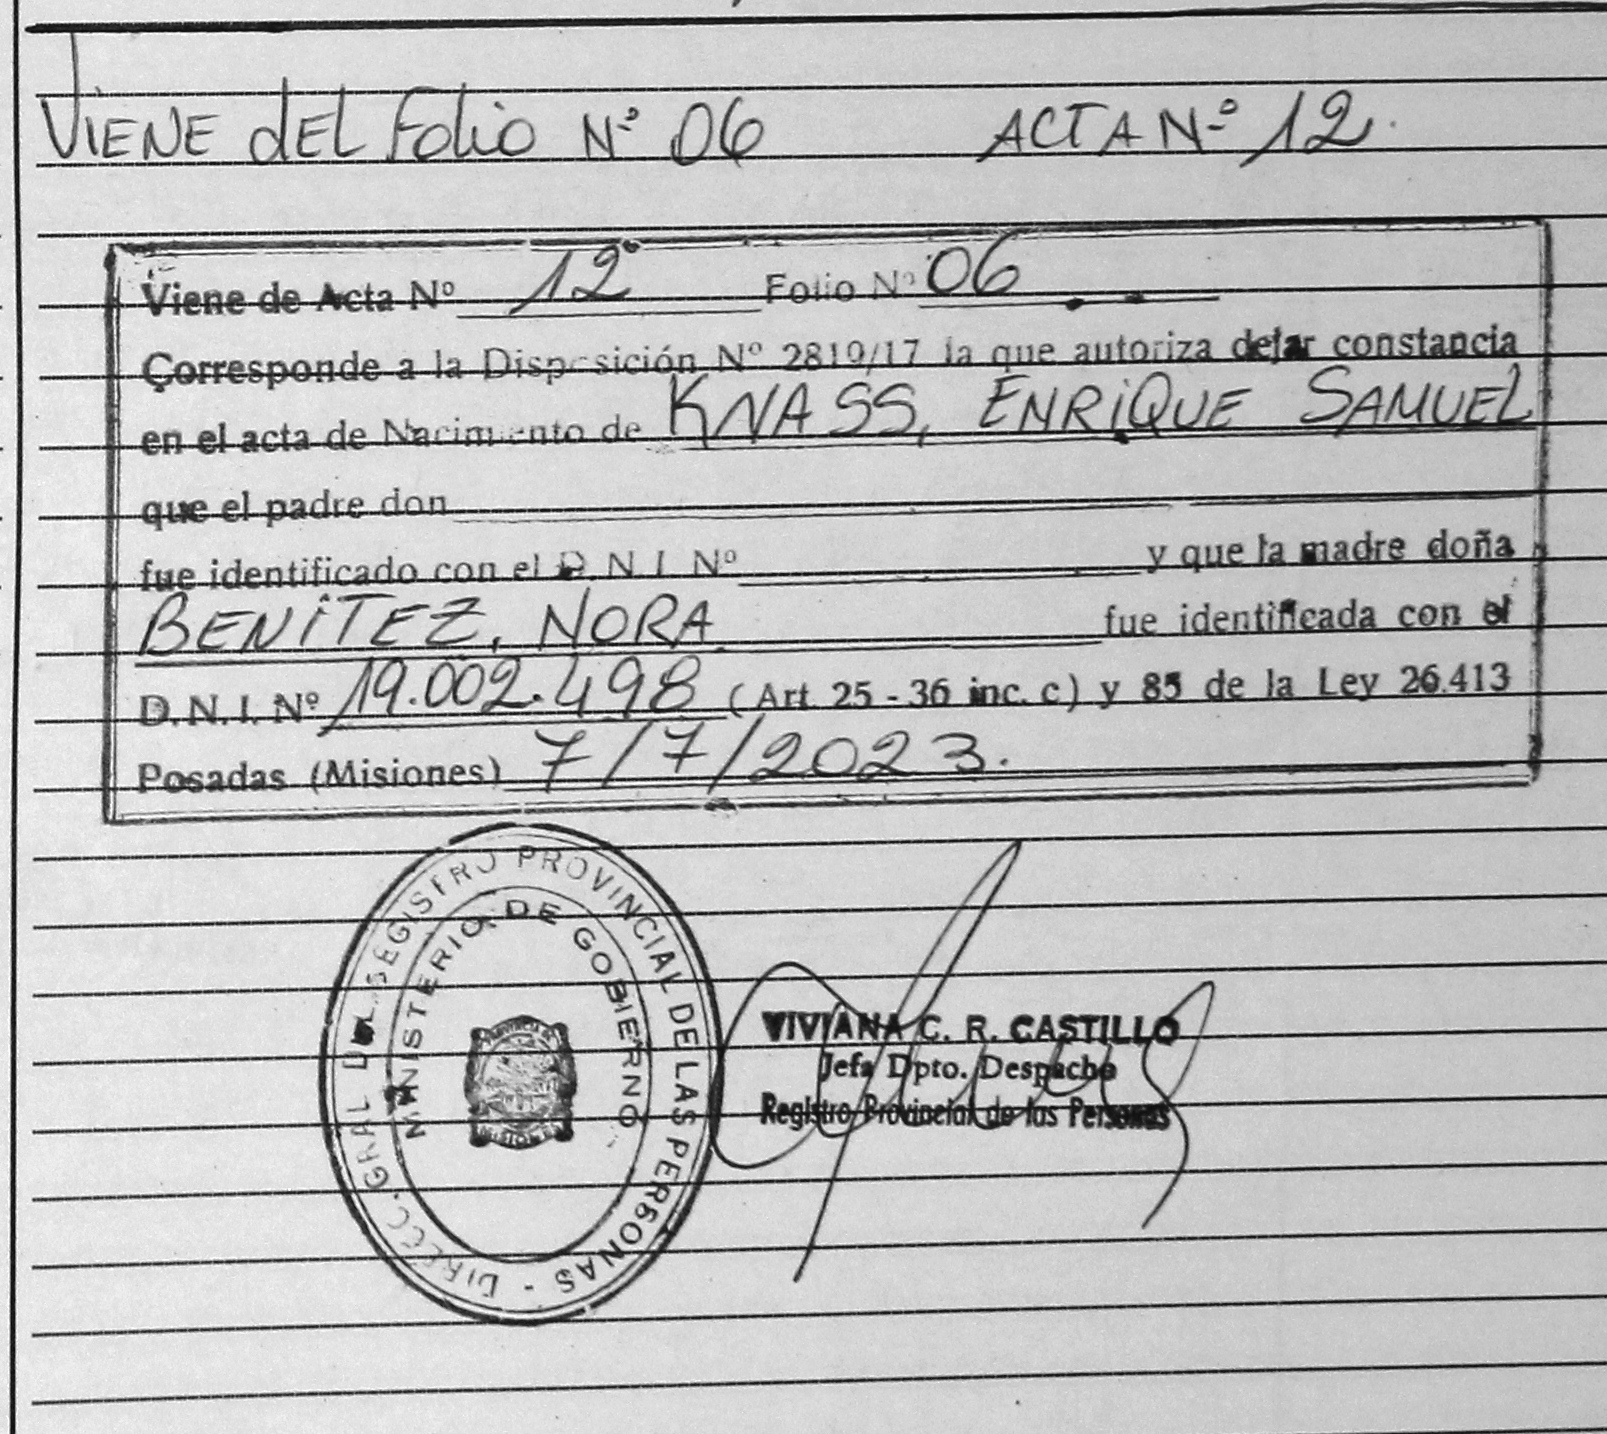 VIENE dEL Folio Nº 06 ACTA Nº 12.
Viene de Acta Nº 12 Folio Nº 06
Corresponde a la Disposición Nº 2819/17 la que autoriza dejar constancia
en el acta de Nacimiento de KNASS, ENRIQUE SAMUEL
que el padre don
fue identificado con el D. N. I. Nº y que la madre doña
BENITEZ, NORA fue identificada con el
D.N.I. Nº 19.002.498 (Art. 25 - 36 inc. c) y 85 de la Ley 26.413
Posadas (Misiones) 7/7/2023.
DIRECC. GRAL DEL REGISTRO PROVINCIAL DE LAS PERSONAS -
MINISTERIO DE GOBIERNO
PROVINCIA DE
MISIONES
VIVIANA C. R. CASTILLO
Jefa Dpto. Despacho
Registro Provincial de las Personas